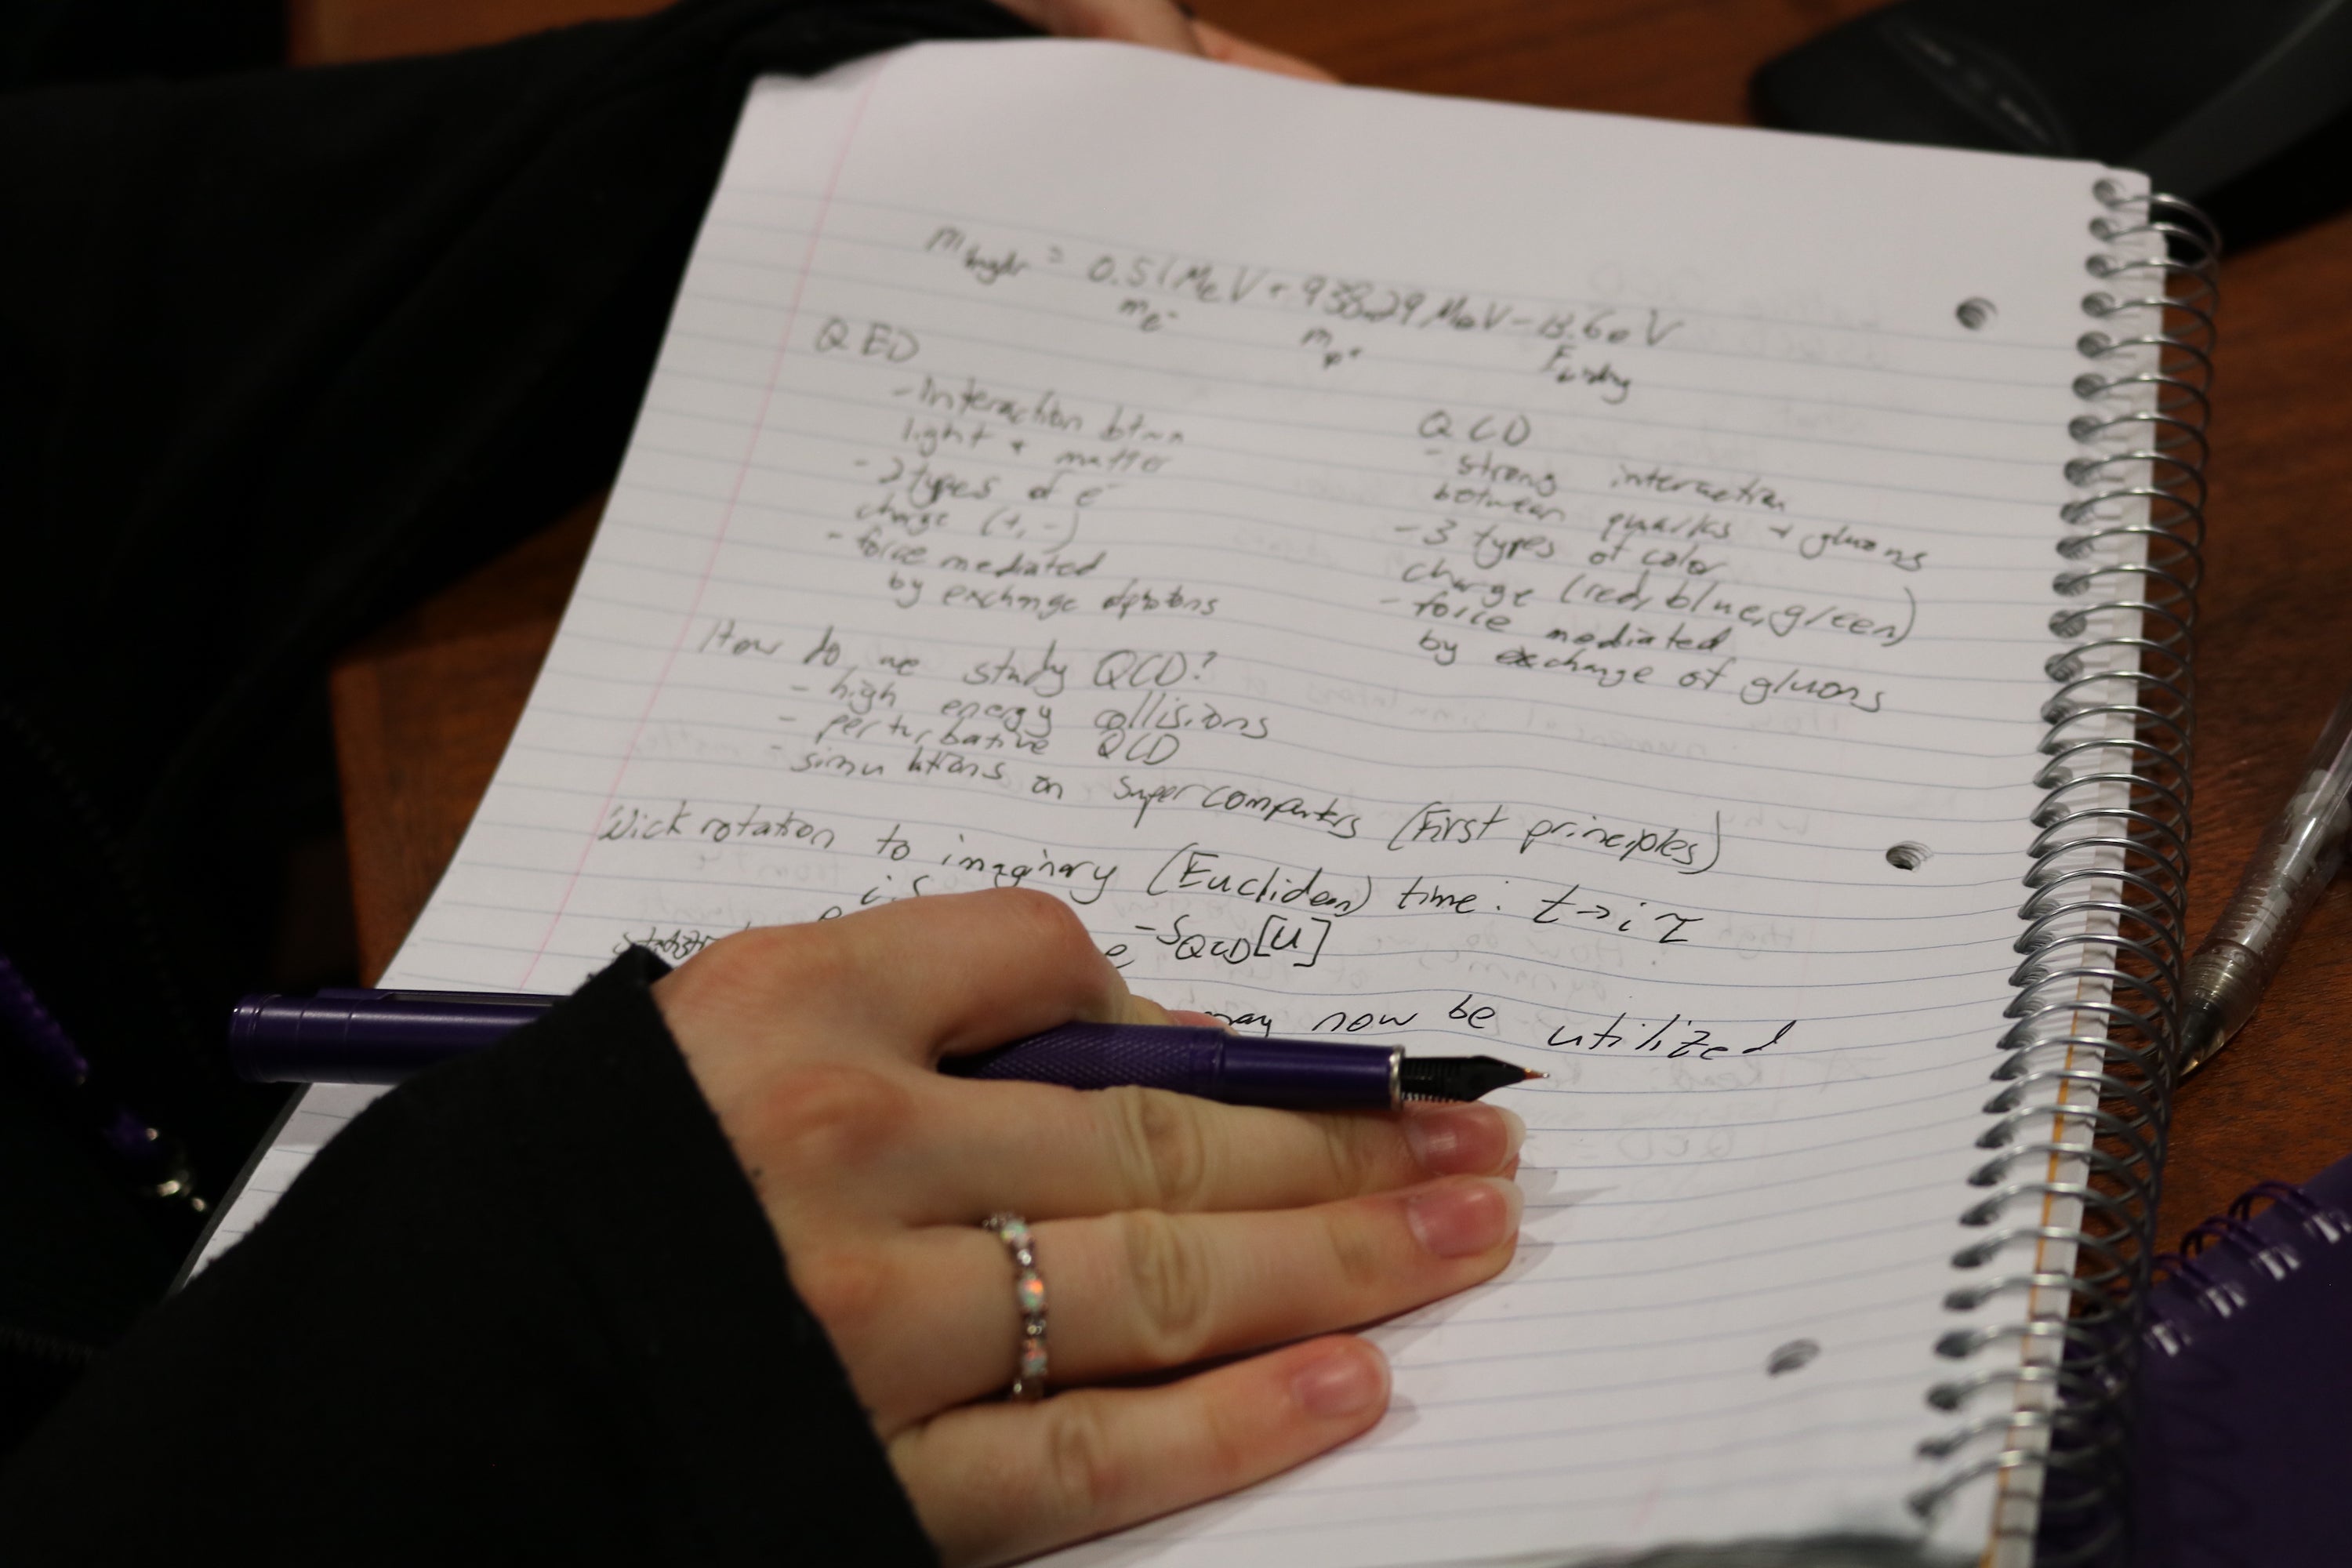 m = 0.51 MeV + 938.29 MeV - 13.6 eV
m e⁻ m p⁺ E binding
QED
- Interaction btwn
light + matter
- 2 types of e⁻
charge (+, -)
- force mediated
by exchange of photons
QCD
- strong interaction
between quarks + gluons
- 3 types of color
charge (red, blue, green)
- force mediated
by exchange of gluons
How do we study QCD?
- high energy collisions
- perturbative QCD
- simulations on supercomputers (First principles)
Wick rotation to imaginary (Euclidean) time: t → iτ
e^-S_QCD[U]
may now be utilized